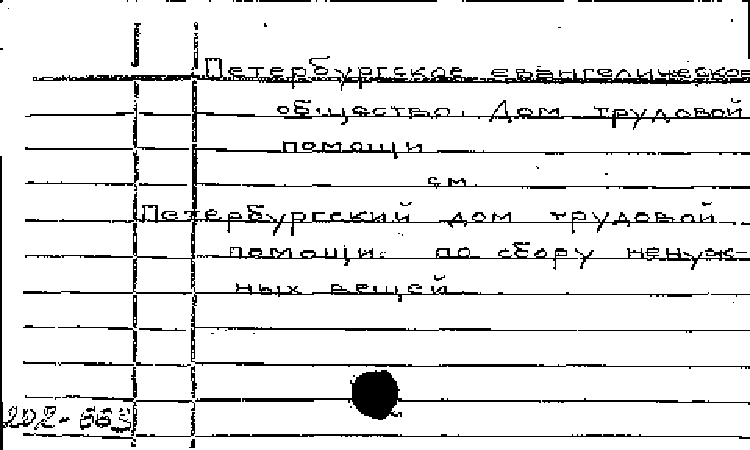 Петербургское евангелическое
общество. Дом трудовой
помощи
см.
Петербургский дом трудовой
помощи по сбору ненуж-
ных вещей
202-663